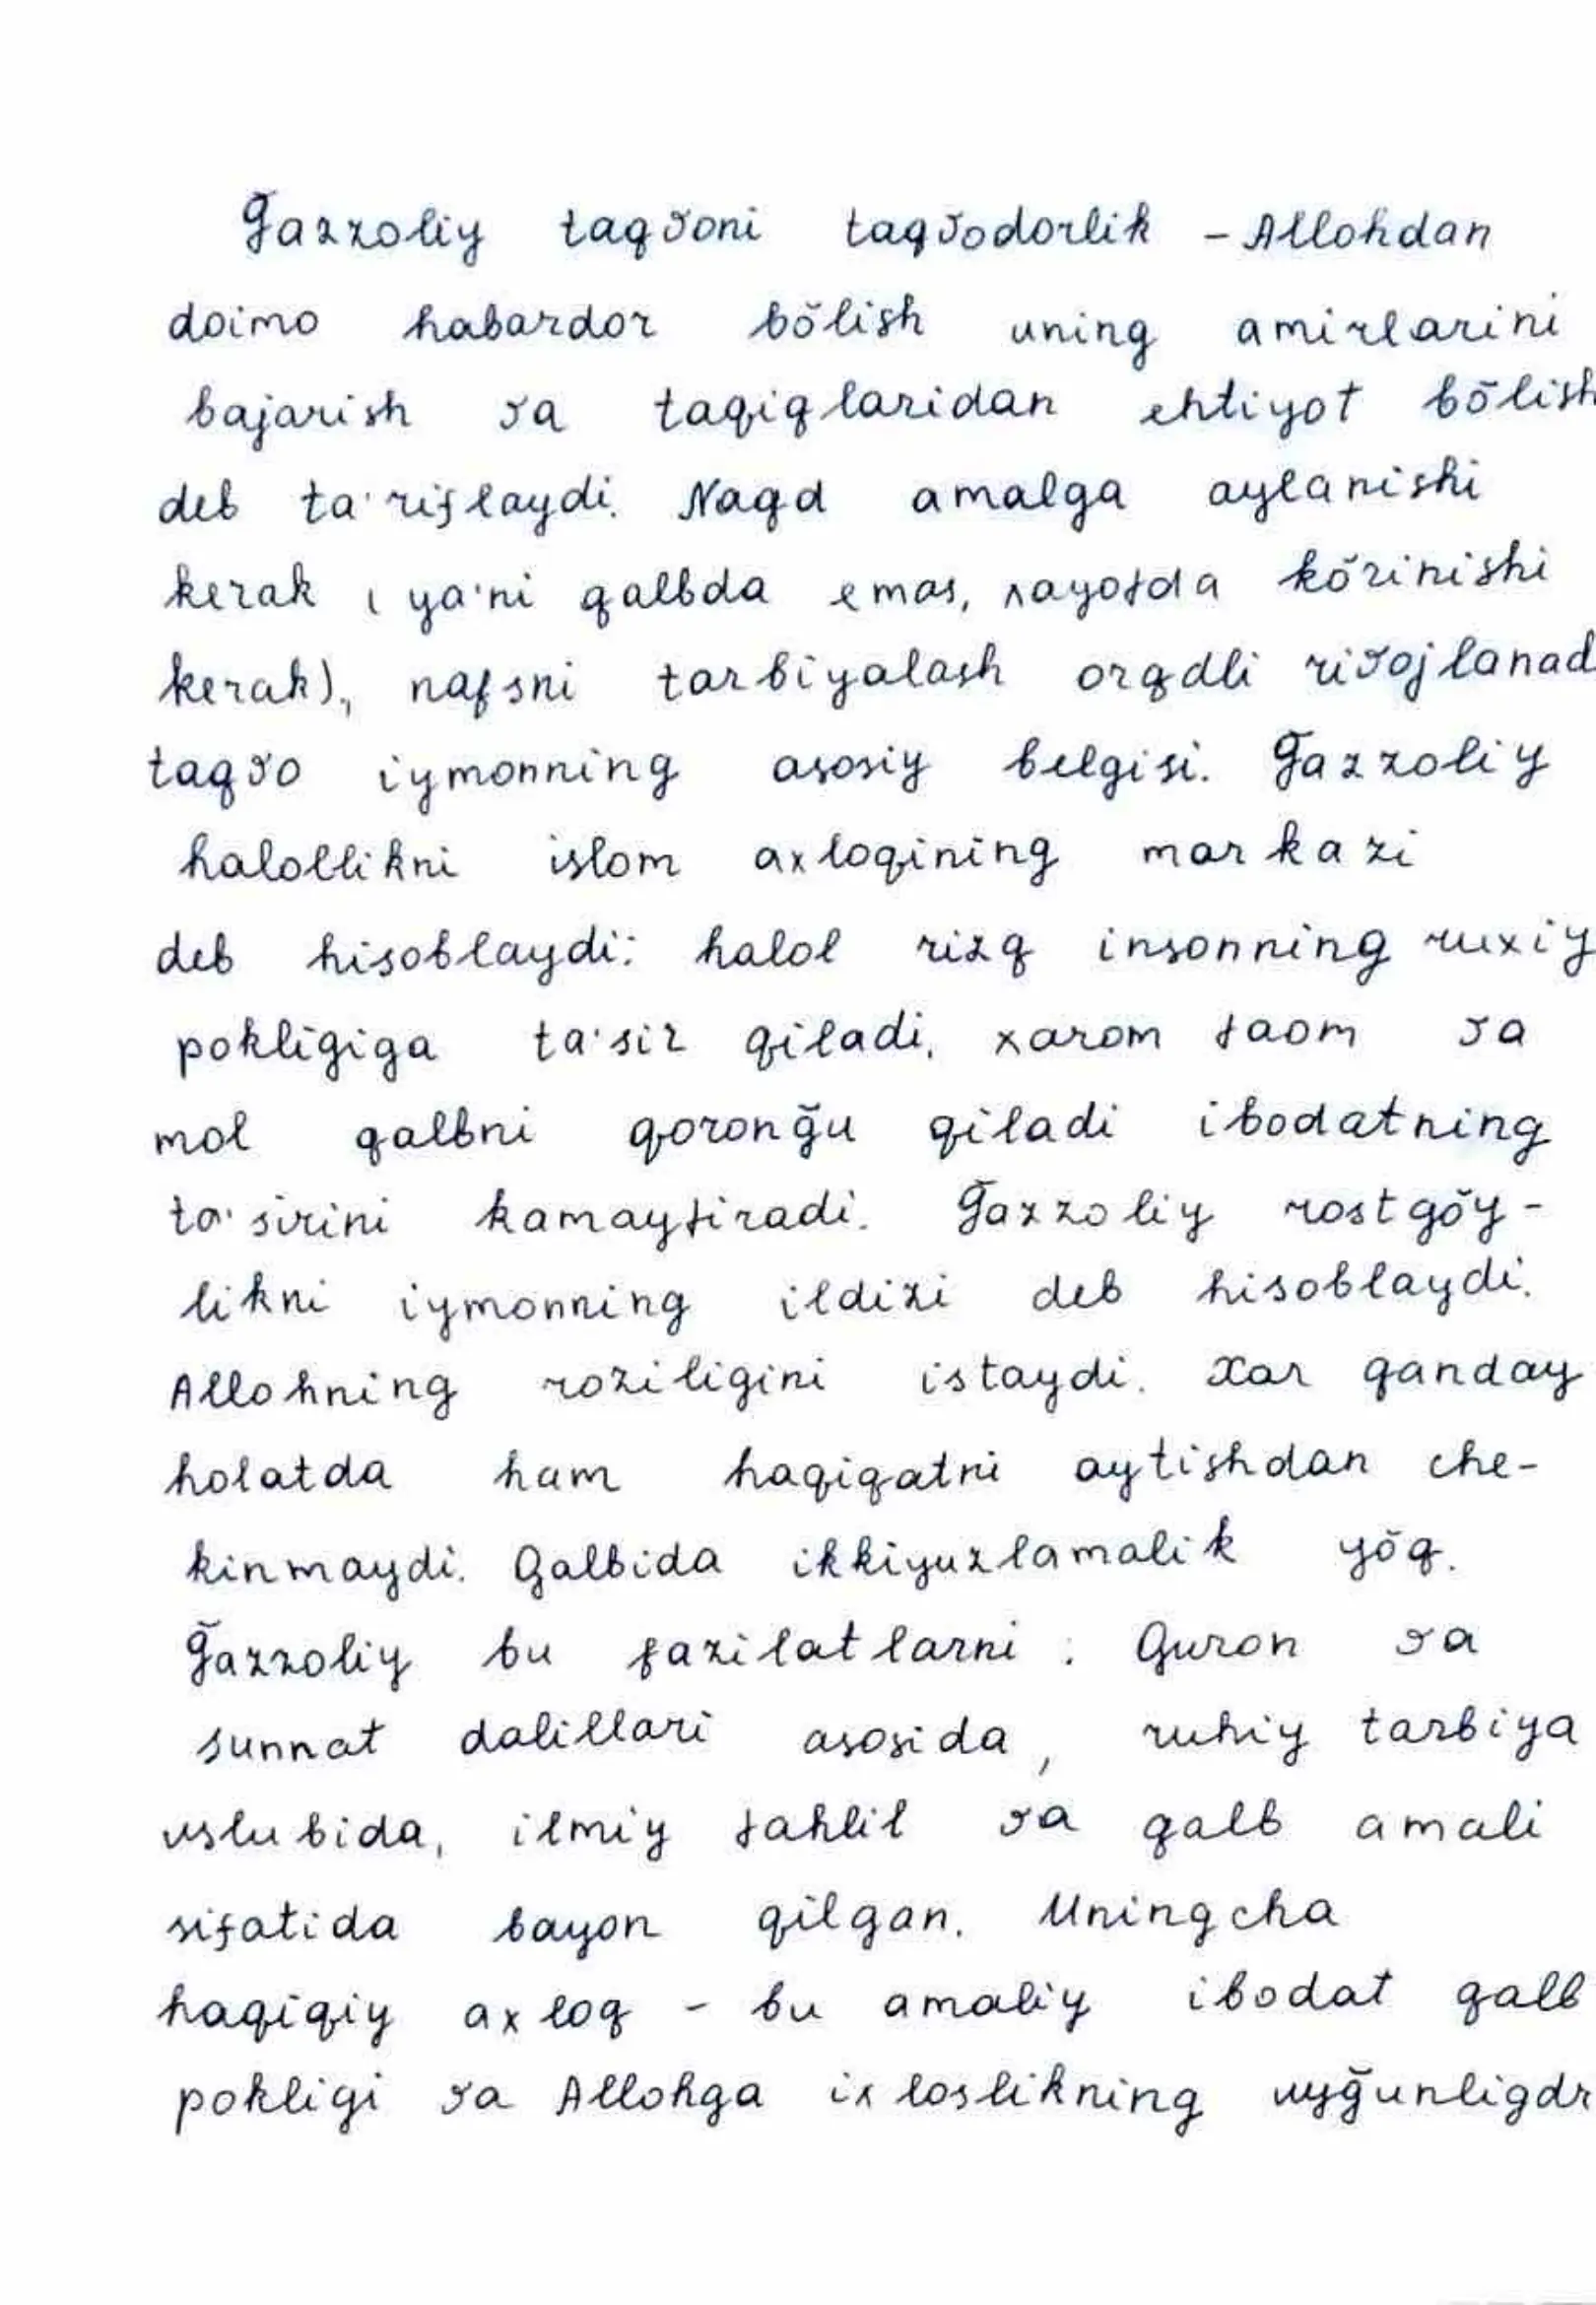 Ğazzoliy taqvoni taqvodorlik - Allohdan
doimo habardor bõlish uning amirlarini
bajarish va taqiqlaridan ehtiyot bõlish
deb ta'riflaydi. Naqd amalga aylanishi
kerak ( ya'ni qalbda emas, xayotda kõrinishi
kerak)., nafsni tarbiyalash orqdli rivojlanad
taqvo iymonning asosiy belgisi. Ğazzoliy
halollikni islom axloqining markazi
deb hisoblaydi: halol rizq insonning ruxiy
pokligiga ta'sir qiladi, xarom taom va
mol qalbni qoronğu qiladi ibodatning
ta'sirini kamaytiradi. Ğazzoliy rostgõy-
likni iymonning ildizi deb hisoblaydi.
Allohning roziligini istaydi. Xar qanday
holatda ham haqiqatni aytishdan che-
kinmaydi. Qalbida ikkiyuzlamalik yõq.
Ğazzoliy bu fazilatlarni : Quron va
sunnat dalillari asosida, ruhiy tarbiya
uslubida, ilmiy tahlil va qalb amali
sifatida bayon qilgan. Uningcha
haqiqiy axloq - bu amaliy ibodat qalb
pokligi va Allohga ixloslikning uyğunligdr